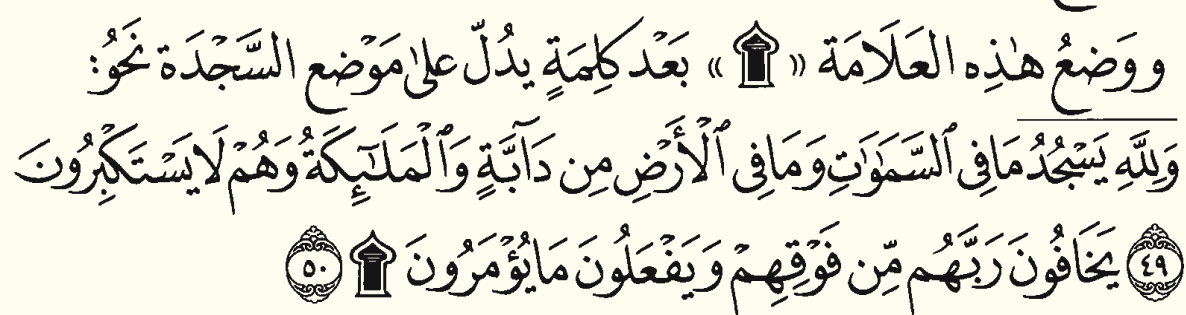 ووَضعُ هٰذِه العَلَامَة « ۩ » بَعْد كلِمَةٍ يدُلّ علىٰ مَوْضع السَّجْدَة نَحْوُ:
وَلِلَّهِ يَسْجُدُ مَا فِي ٱلسَّمَٰوَٰتِ وَمَا فِي ٱلْأَرْضِ مِن دَآبَّةٍ وَٱلْمَلَٰٓئِكَةُ وَهُمْ لَا يَسْتَكْبِرُونَ
٤٩ يَخَافُونَ رَبَّهُم مِّن فَوْقِهِمْ وَيَفْعَلُونَ مَا يُؤْمَرُونَ ۩ ٥٠